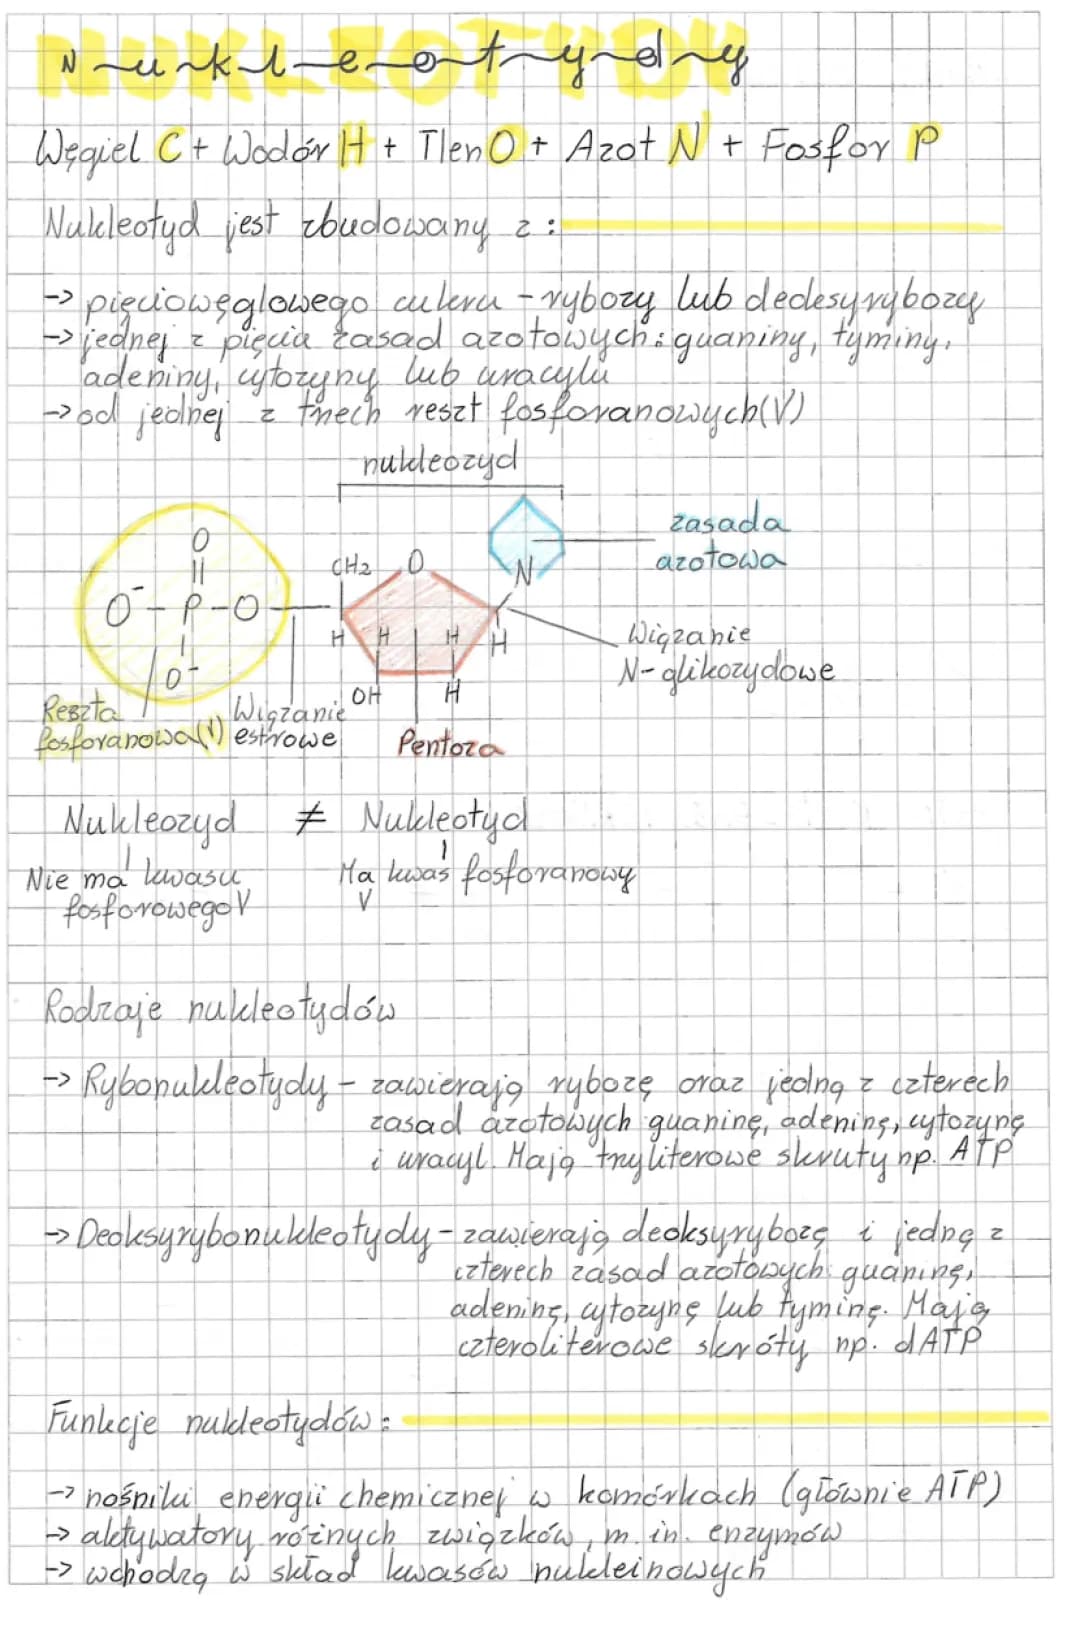 Nukleotydy
Węgiel C + Wodór H + Tlen O + Azot N + Fosfor P
Nukleotyd jest zbudowany z:
-> pięciowęglowego cukru - rybozy lub dedesyrybozy
-> jednej z pięciu zasad azotowych: guaniny, tyminy,
adeniny, cytozyny lub uracylu
-> od jednej z trzech reszt fosforanowych(V)
nukleozyd
zasada
azotowa
O
CH2 O
N
O⁻ - P - O
H H H H
Wiązanie
N-glikozydowe
O⁻
OH H
Reszta
fosforanowa(V)
Wiązanie
estrowe
Pentoza
Nukleozyd ≠ Nukleotyd
Nie ma kwasu
fosforowego V
Ma kwas fosforanowy
V
Rodzaje nukleotydów
-> Rybonukleotydy - zawierają rybozę oraz jedną z czterech
zasad azotowych guaninę, adeninę, cytozynę
i uracyl. Mają tryliterowe skruty np. ATP
-> Deoksyrybonukleotydy - zawierają deoksyrybozę i jedną z
czterech zasad azotowych: guaninę,
adeninę, cytozynę lub tyminę. Mają
czteroliterowe skróty np. dATP
Funkcje nukleotydów:
-> nośniki energii chemicznej w komórkach (głównie ATP)
-> aktywatory różnych związków, m.in. enzymów
-> wchodzą w skład kwasów nukleinowych